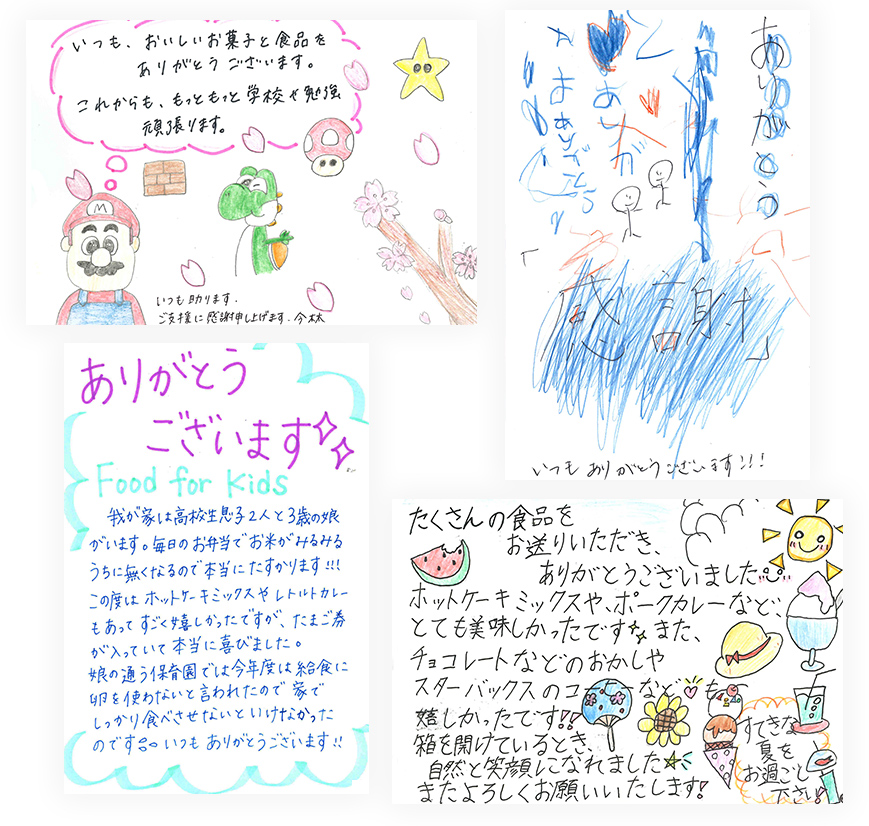 いつも、おいしいお菓子と食品を
ありがとうございます。
これからも、もっともっと学校や勉強
頑張ります。
M
いつも助ります.
ご支援に感謝申し上げます.
ありがとう
ありが
ありがとう
「感謝」
いつもありがとうございます!!!
ありがとう
ございます
Food for Kids
我が家は高校生息子2人と3歳の娘
がいます。毎日のお弁当でお米がみるみる
うちに無くなるので本当にたすかります!!!
この度はホットケーキミックスやレトルトカレー
もあってすごく嬉しかったですが、たまご券
が入っていて本当に喜びました。
娘の通う保育園では今年度は給食に
卵を使わないと言われたので家で
しっかり食べさせないといけなかった
のです。いつもありがとうございます!!
たくさんの食品を
お送りいただき、
ありがとうございました
ホットケーキミックスや、ポークカレーなど、
とても美味しかったです また、
チョコレートなどのおかしや
スターバックスのコーヒーなども
嬉しかったです!!
箱を開けているとき、
自然と笑顔になれました
またよろしくお願いいたします!
すてきな
夏を
お過ごし
下さい!